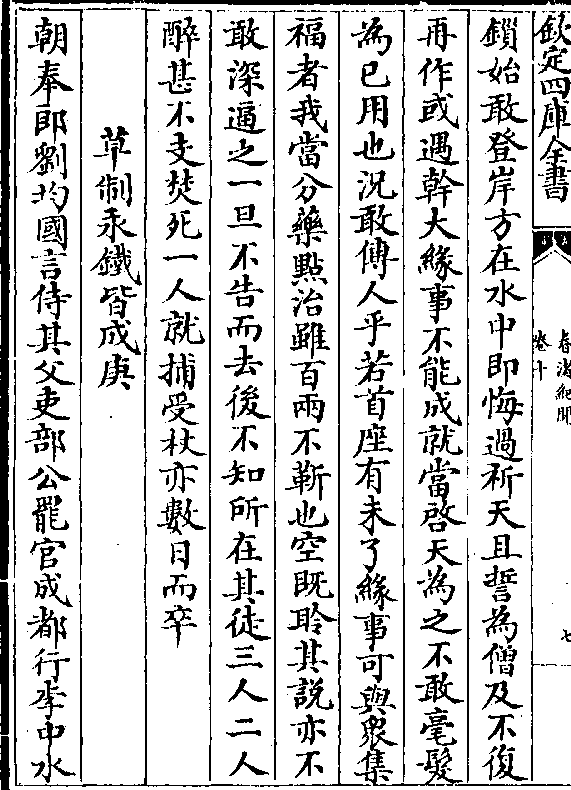 欽定四庫全書
春渚紀聞
卷十
七
鎖始敢登岸方在水中即悔過祈天且誓為僧及不復
再作或遇幹大緣事不能成就當啓天為之不敢毫髮
為已用也況敢傳人乎若首座有未了緣事可與衆集
福者我當分藥點治雖百兩不靳也空既聆其說亦不
敢深逼之一旦不告而去後不知所在其徒三人二人
醉甚不支焚死一人就捕受杖亦數日而卒
草制汞鐵皆成庚
朝奉郎劉均國言侍其父吏部公罷官成都行李中水